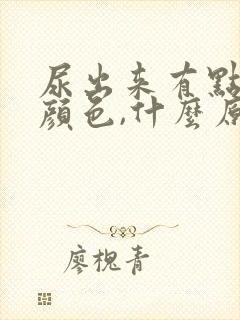 尿出来有點
顔色,什麼原
廖槐青